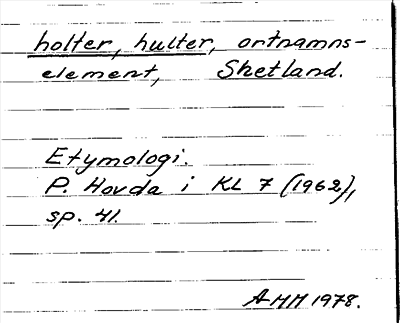 holter, hulter, ortnamns-
element, Shetland.
Etymologi.
P. Hovda i KL 7 (1962),
sp. 41.
AHH 1978.